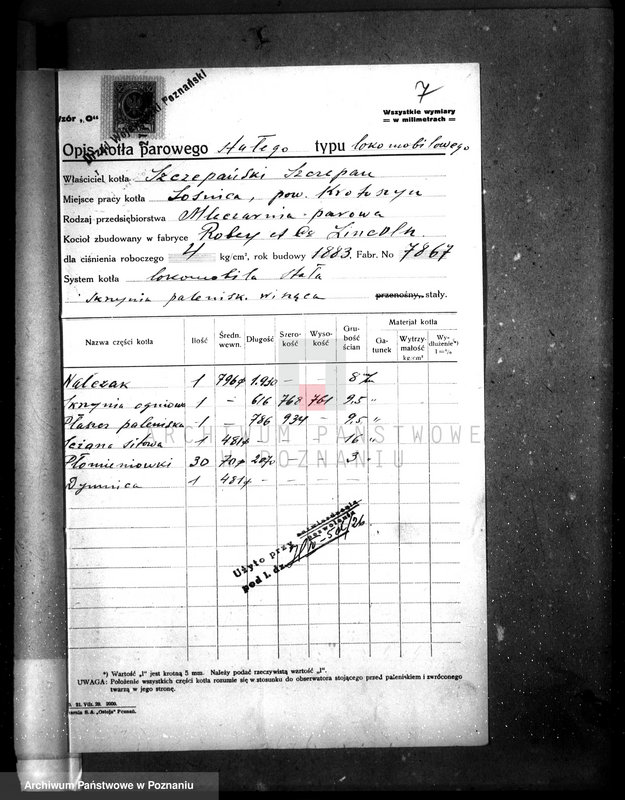 7
Wzór „O"
Wszystkie wymiary
— w milimetrach —
Poznański
Opis kotła parowego stałego typu lokomobilowego
Właściciel kotła Szczepański Szczepan
Miejsce pracy kotła Łośnica, pow. Krotoszyn
Rodzaj przedsiębiorstwa Mleczarnia parowa
Kocioł zbudowany w fabryce Robey et Co Lincoln
dla ciśnienia roboczego 4 kg/cm², rok budowy 1883. Fabr. No 7867
System kotła lokomobila stała
skrzynia palenisk. wisząca przenośny, stały.
Nazwa części kotła Ilość Średn. wewn. Długość Szerokość Wysokość Grubość ścian Materjał kotła
Gatunek Wytrzymałość kg/cm² Wydłużenie*) l = %
Walczak 1 796ø 1.930 — — 8
Skrzynia ogniowa 1 — 616 768 761 9,5 "
Płaszcz paleniska 1 786 934 9,5 "
Ściana sitowa 1 481ø — — — 16 "
Płomieniówki 30 70ø 2070 — — 3 "
Dymnica 1 481ø — — — —
Użyto przy zatwierdzeniu
zezwolenia
pod l. dz.
*) Wartość „l" jest krotną 5 mm. Należy podać rzeczywistą wartość „l".
UWAGA: Położenie wszystkich części kotła rozumie się w stosunku do obserwatora stojącego przed paleniskiem i zwróconego
twarzą w jego stronę.
21. Vds. 20. 2000.
S.A. „Ostoja" Poznań.
ARCHIWUM PAŃSTWOWE
W POZNANIU
Archiwum Państwowe w Poznaniu